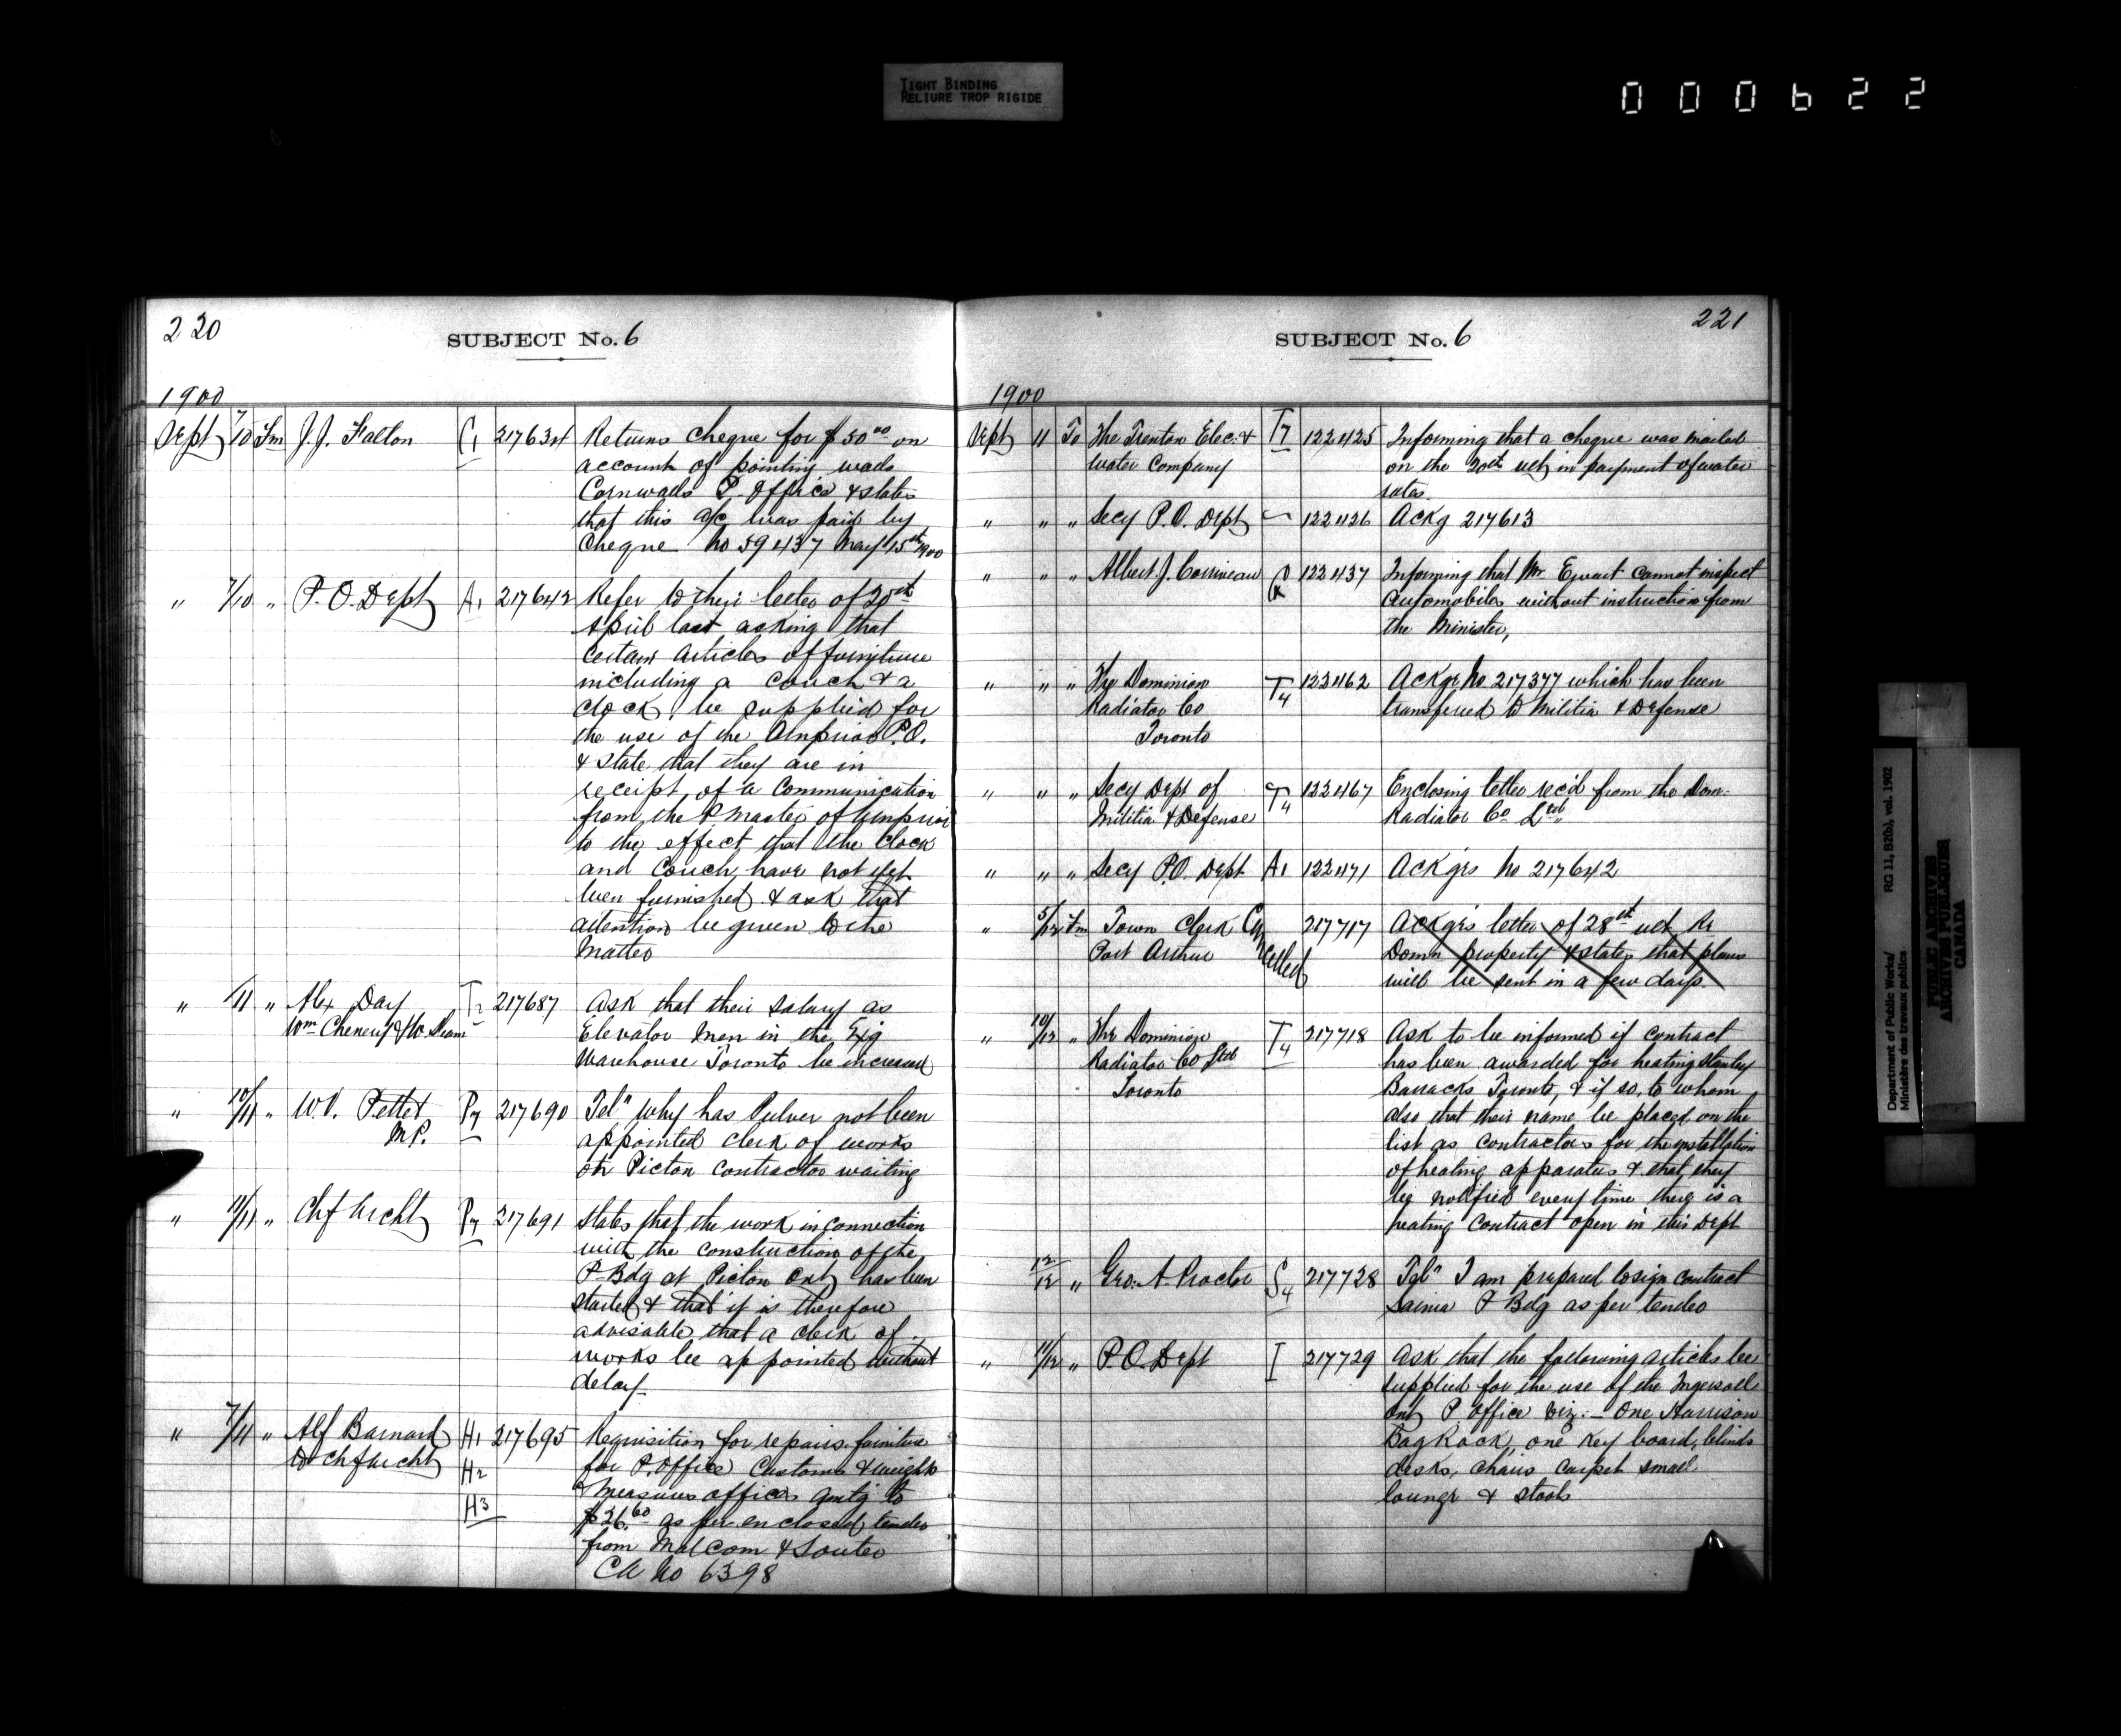 TIGHT BINDING
RELIURE TROP RIGIDE
000622
220
SUBJECT No. 6
1900
Sept 7/10 Fm J.J. Fallon C1 217634 Returns cheque for $50.00 on
account of pointing walls
Cornwall P. Office & states
that this a/c was paid by
Cheque No 59437 May 15th 1900
" 7/10 " P.O. Dept A1 217642 Refer to their letter of 20th
April last asking that
certain articles of furniture
including a couch & a
clock, be supplied for
the use of the Arnprior P.O.
& state that they are in
receipt of a communication
from the P Master of Arnprior
to the effect that the clock
and couch have not yet
been furnished & ask that
attention be given to the
matter
" /11 " Alex Day T2 217687 Ask that their salary as
Wm Cheney & Elevator Men in the Exg
Warehouse Toronto be increased
" 10/11 " W.V. Pettet P7 217690 Teln Why has Pulver not been
M.P. appointed clerk of works
on Picton contractor waiting
" 11/11 " Chf Archt P7 217691 States that the work in connection
with the construction of the
P Bdg at Picton Ont has been
started & that it is therefore
advisable that a clerk of
works be appointed without
delay
" 7/11 " Alf Barnard H1 217695 Requisition for repairs furniture
to Chf Archt H2 for P. Office Customs & weights
H3 & Measures offices amtg to
$26.60 as per enclosed tender
from Malcom & Souter
CA No 6398
221
SUBJECT No. 6
1900
Sept 11 To The Trenton Elec. & T7 122425 Informing that a cheque was mailed
Water Company on the 20th ult in payment of water
rates.
" " " Secy P.O. Dept 122426 Ackg 217613
" " " Albert J. Corriveau 122437 Informing that Mr Ewart cannot inspect
automobiles without instruction from
the Minister,
" " " The Dominion T4 122462 Ackgs No 217377 which has been
Radiator Co transferred to Militia & Defense
Toronto
" " " Secy Dept of T4 122467 Enclosing letter rec'd from the Dom.
Militia & Defense Radiator Co Ltd
" " " Secy P.O. Dept A1 122471 Ackgs No 217642
" 5/12 Fm Town Clerk Cancelled 217717 Ackgs letter of 28th ult Re
Port Arthur Domn property & states that plans
will be sent in a few days.
" 10/12 " The Dominion T4 217718 Ask to be informed if contract
Radiator Co Ltd has been awarded for heating Stanley
Toronto Barracks Toronto, & if so, to whom
also that their name be placed on the
list as contractors for the installation
of heating apparatus & that they
be notified every time there is a
heating contract open in this Dept
12/12 " Geo. A. Proctor S4 217728 Teln I am prepared to sign contract
Sarnia P Bdg as per tender
" 11/12 " P.O. Dept I 217729 Ask that the following articles be
supplied for the use of the Ingersoll
Ont P. Office viz: – One Harrison
Bag Rack, one Key board, blinds
desks, chairs carpet small
lounge & stools
Department of Public Works/
Ministère des travaux publics
RG 11, B2(b), vol. 1902
PUBLIC ARCHIVES
ARCHIVES PUBLIQUES
CANADA